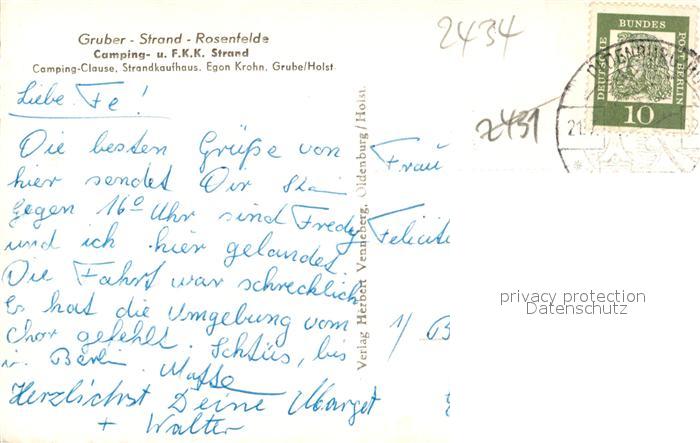 Gruber - Strand - Rosenfelde
Camping- u. F.K.K. Strand
Camping-Clause, Strandkaufhaus. Egon Krohn, Grube/Holst.
2434
2431
DEUTSCHE BUNDES POST BERLIN
10
Liebe Fe!
Die besten Grüße von
hier sendet Dir
Gegen 16º Uhr sind Fredy
und ich hier gelandet.
Die Fahrt war schrecklich
Es hat die Umgebung vom
Chor gefehlt. Schüs, bis
in Berlin.
Herzlichst Deine Margot
+ Walter
Verlag Herbert Venneberg, Oldenburg/Holst.
Frau
Felicit
1/
privacy protection
Datenschutz